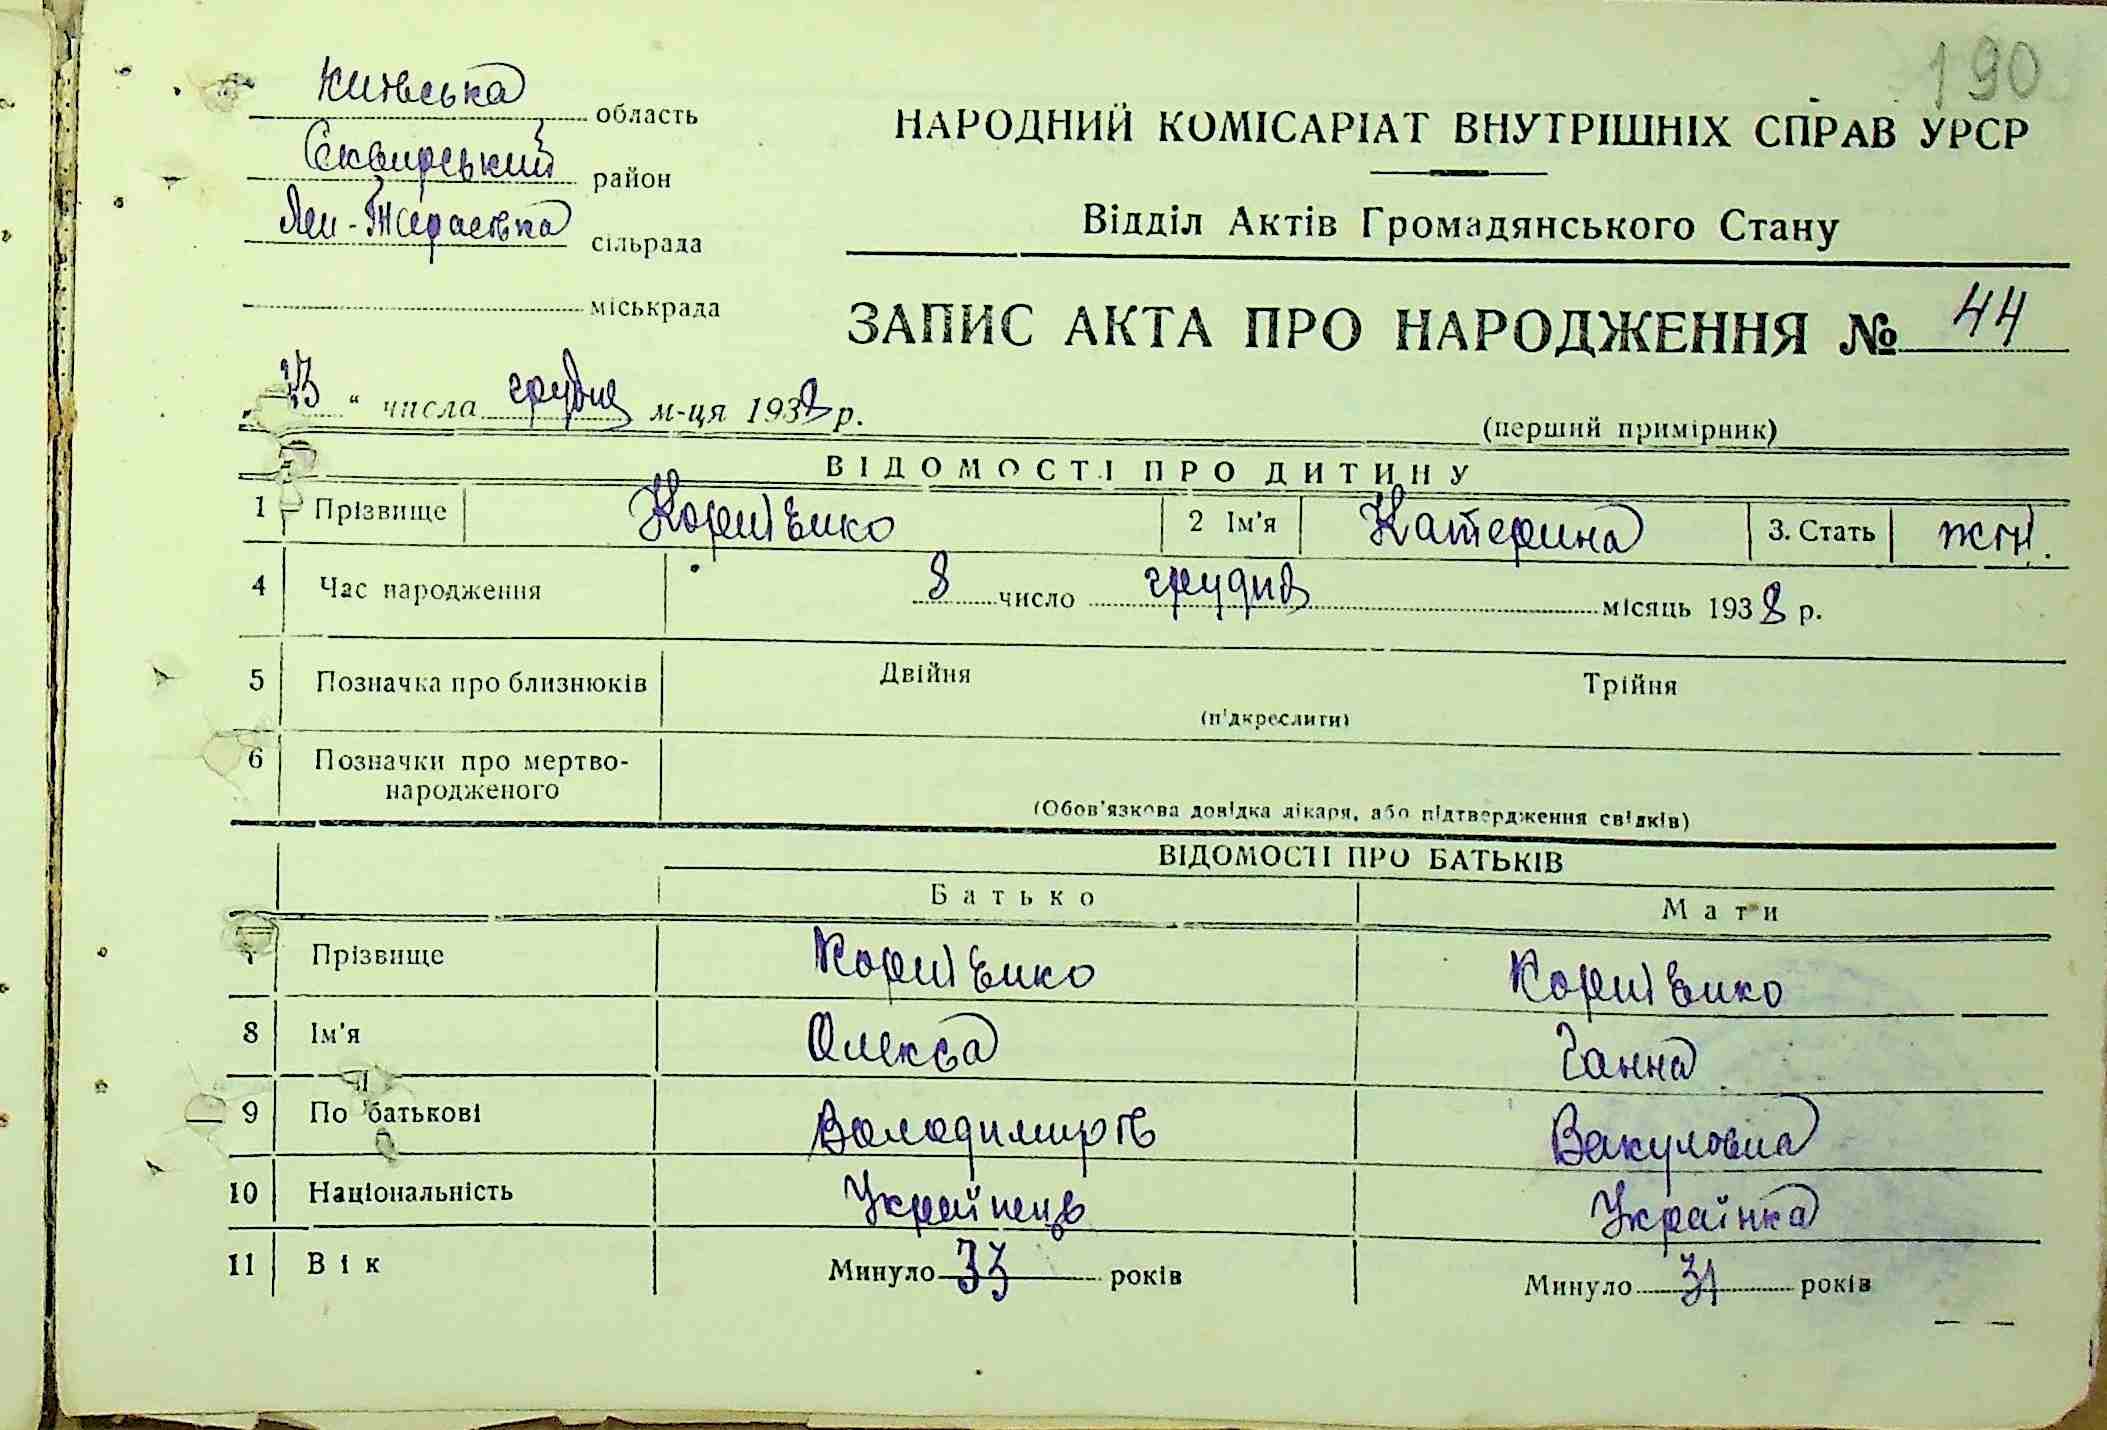 190
Київська область
Сквирський район
сільрада
міськрада
НАРОДНИЙ КОМІСАРІАТ ВНУТРІШНІХ СПРАВ УРСР
Відділ Актів Громадянського Стану
ЗАПИС АКТА ПРО НАРОДЖЕННЯ № 44
" числа грудня м-ця 1938 р.
(перший примірник)
ВІДОМОСТІ ПРО ДИТИНУ
1 Прізвище Корнієнко 2 Ім'я Катерина 3. Стать жін.
4 Час народження 8 число грудня місяць 1938 р.
5 Позначка про близнюків Двійня Трійня
(підкреслити)
6 Позначки про мертво-
народженого
(Обов'язкова довідка лікаря, або підтвердження свідків)
ВІДОМОСТІ ПРО БАТЬКІВ
Батько Мати
7 Прізвище Корнієнко Корнієнко
8 Ім'я Олекса Ганна
9 По батькові Володимирів Вакуловна
10 Національність Українець Українка
11 Вік Минуло 33 років Минуло 31 років